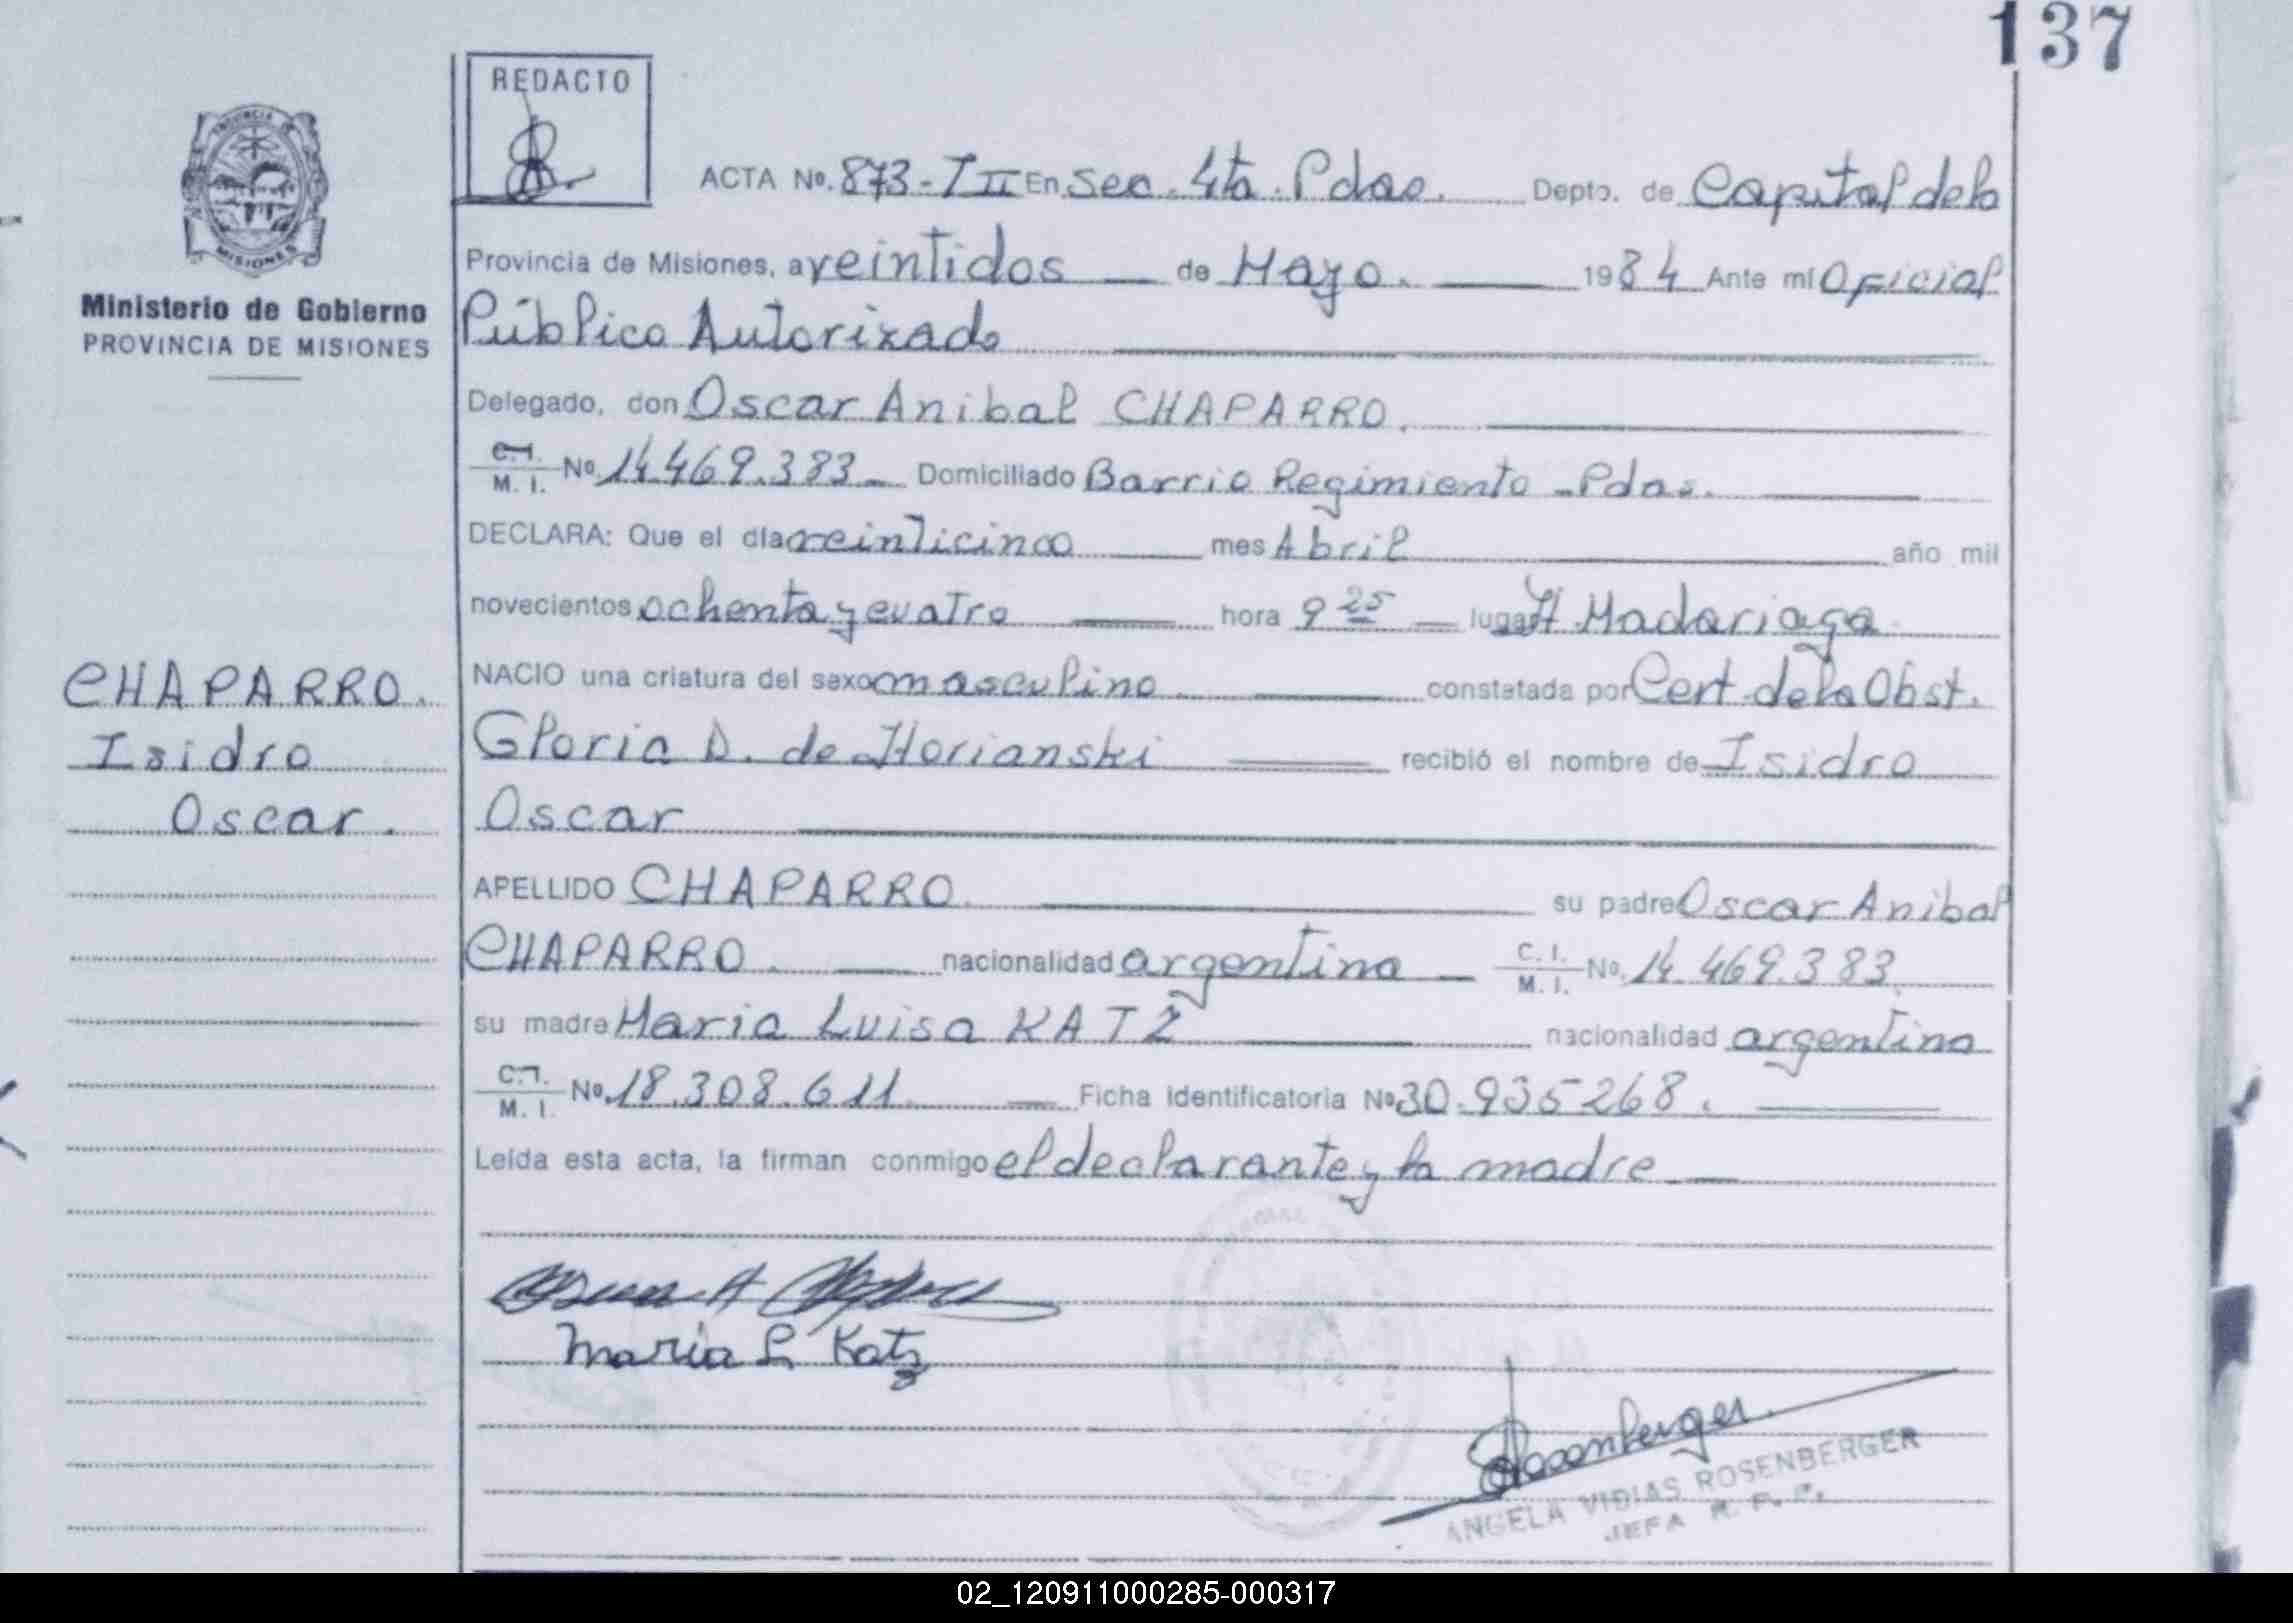 137
REDACTO
PROVINCIA DE
MISIONES
Ministerio de Gobierno
PROVINCIA DE MISIONES
ACTA Nº. 873-T II En Sec. 4ta. Pdas. Depto. de Capital de la
Provincia de Misiones, a veintidos de Mayo. 1984 Ante mí Oficial
Público Autorizado
Delegado, don Oscar Anibal CHAPARRO.
C.I.
M. I. Nº 14.469.383 Domiciliado Barrio Regimiento - Pdas.
DECLARA: Que el día veinticinco mes Abril año mil
novecientos ochenta y cuatro hora 9 25 lugar H. Madariaga
CHAPARRO.
NACIO una criatura del sexo masculino constatada por Cert. de la Obst.
Isidro
Gloria D. de Horianski recibió el nombre de Isidro
Oscar.
Oscar
APELLIDO CHAPARRO su padre Oscar Anibal
CHAPARRO. nacionalidad argentina C. I.
M. I. Nº. 14.469.383
su madre Maria Luisa KATZ nacionalidad argentina
C.I.
M. I. Nº. 18.308.611 Ficha identificatoria Nº 30.935268.
Leída esta acta, la firman conmigo el declarante y la madre
Maria L Katz
Rosenberger
ANGELA VIDIAS ROSENBERGER
JEFA R. P. P.
02_120911000285-000317